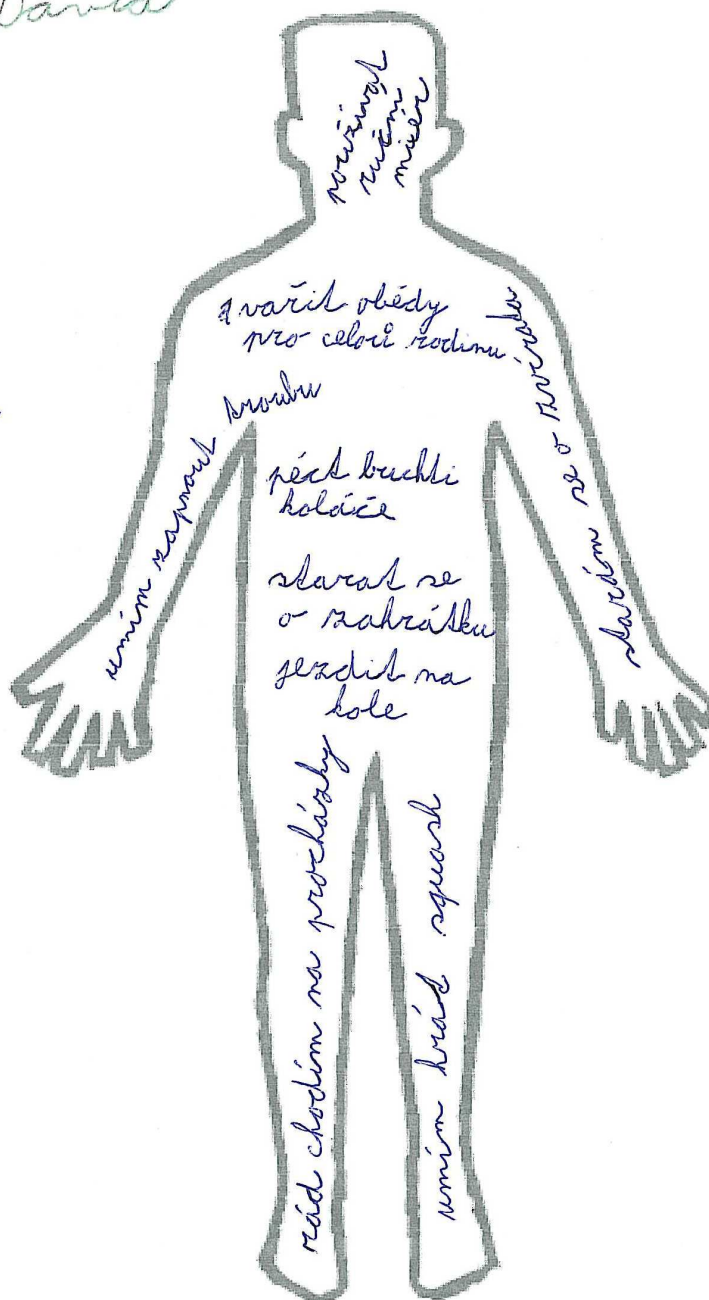 David
používat
ruční
mixér
uvařit obědy
pro celoů rodinu
umím zapnout troubu
starám se o zvířata
péct buchti
koláče
starat se
o zahrátku
jezdit na
kole
rád chodím na procházky
umím hrád squash